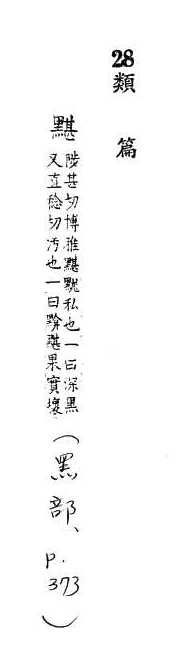 28類篇
黮 陟甚切博雅黮黕私也一曰深黑
又直稔切汚也一曰黭黮果實壞
(黑部、p.373)